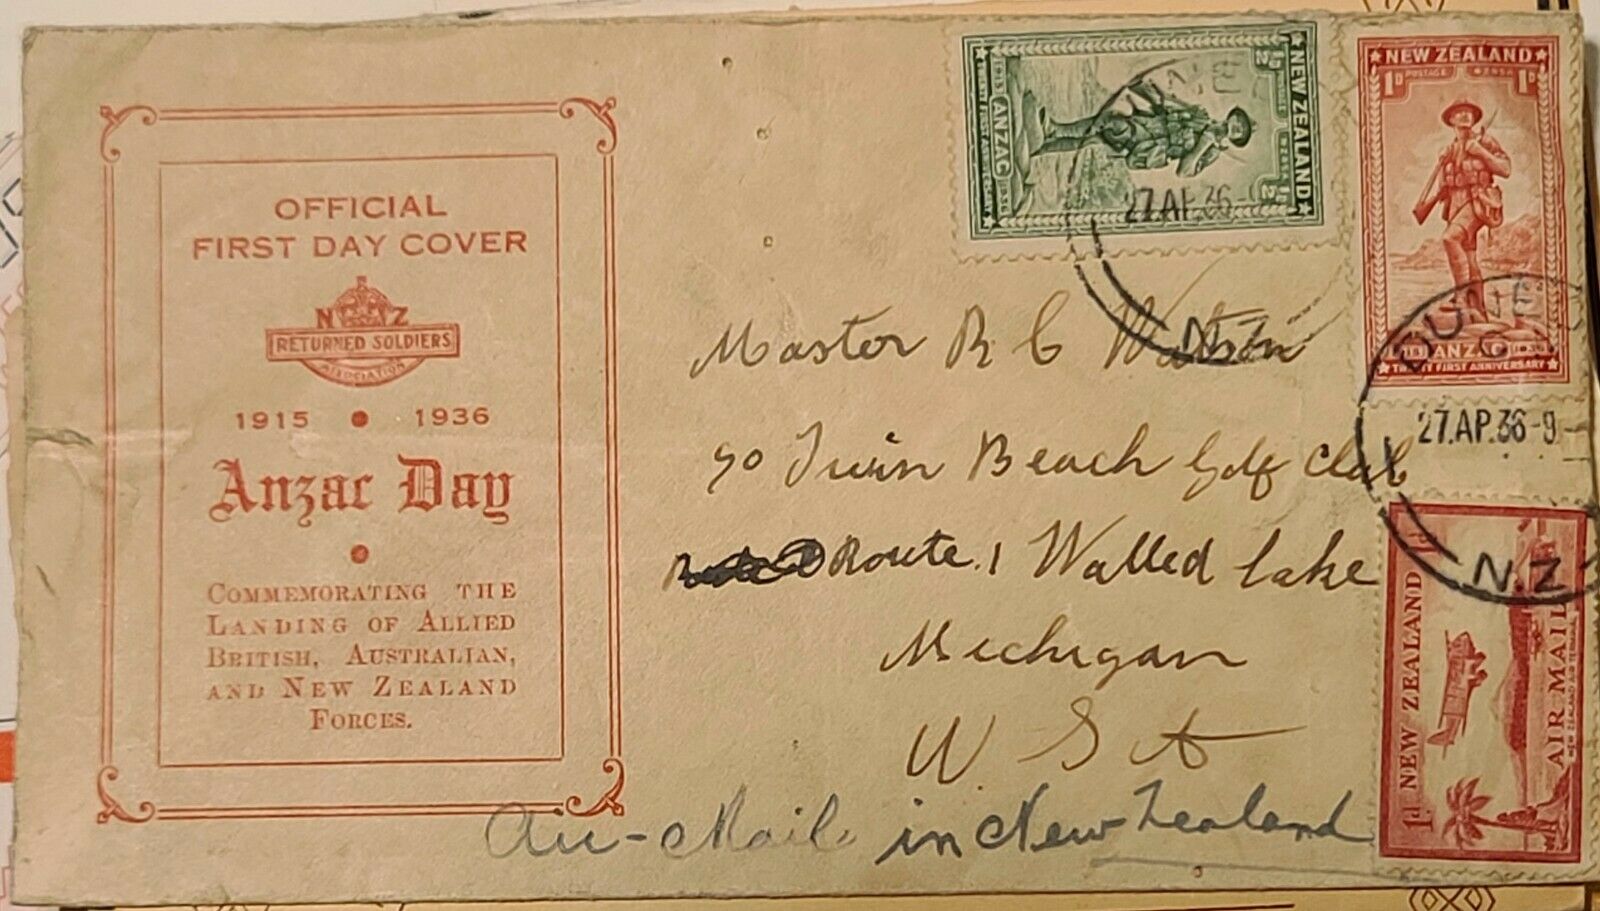 OFFICIAL
FIRST DAY COVER
N Z
RETURNED SOLDIERS
ASSOCIATION
1915 • 1936
Anzac Day
COMMEMORATING THE
LANDING OF ALLIED
BRITISH, AUSTRALIAN,
AND NEW ZEALAND
FORCES.
NEW ZEALAND
½D POSTAGE ½D
1915 ANZAC 1936
TWENTY FIRST ANNIVERSARY
27 AP. 36
N.Z
NEW ZEALAND
1D POSTAGE 1D
ANZAC 1936
TWENTY FIRST ANNIVERSARY
DUNED
27.AP.36-9
N.Z
1d NEW ZEALAND 1d
AIR MAIL
Master R C Watson
Twin Beach Golf Club
Route. 1 Walled Lake
Michigan
U S A
Air-Mail. in New Zealand